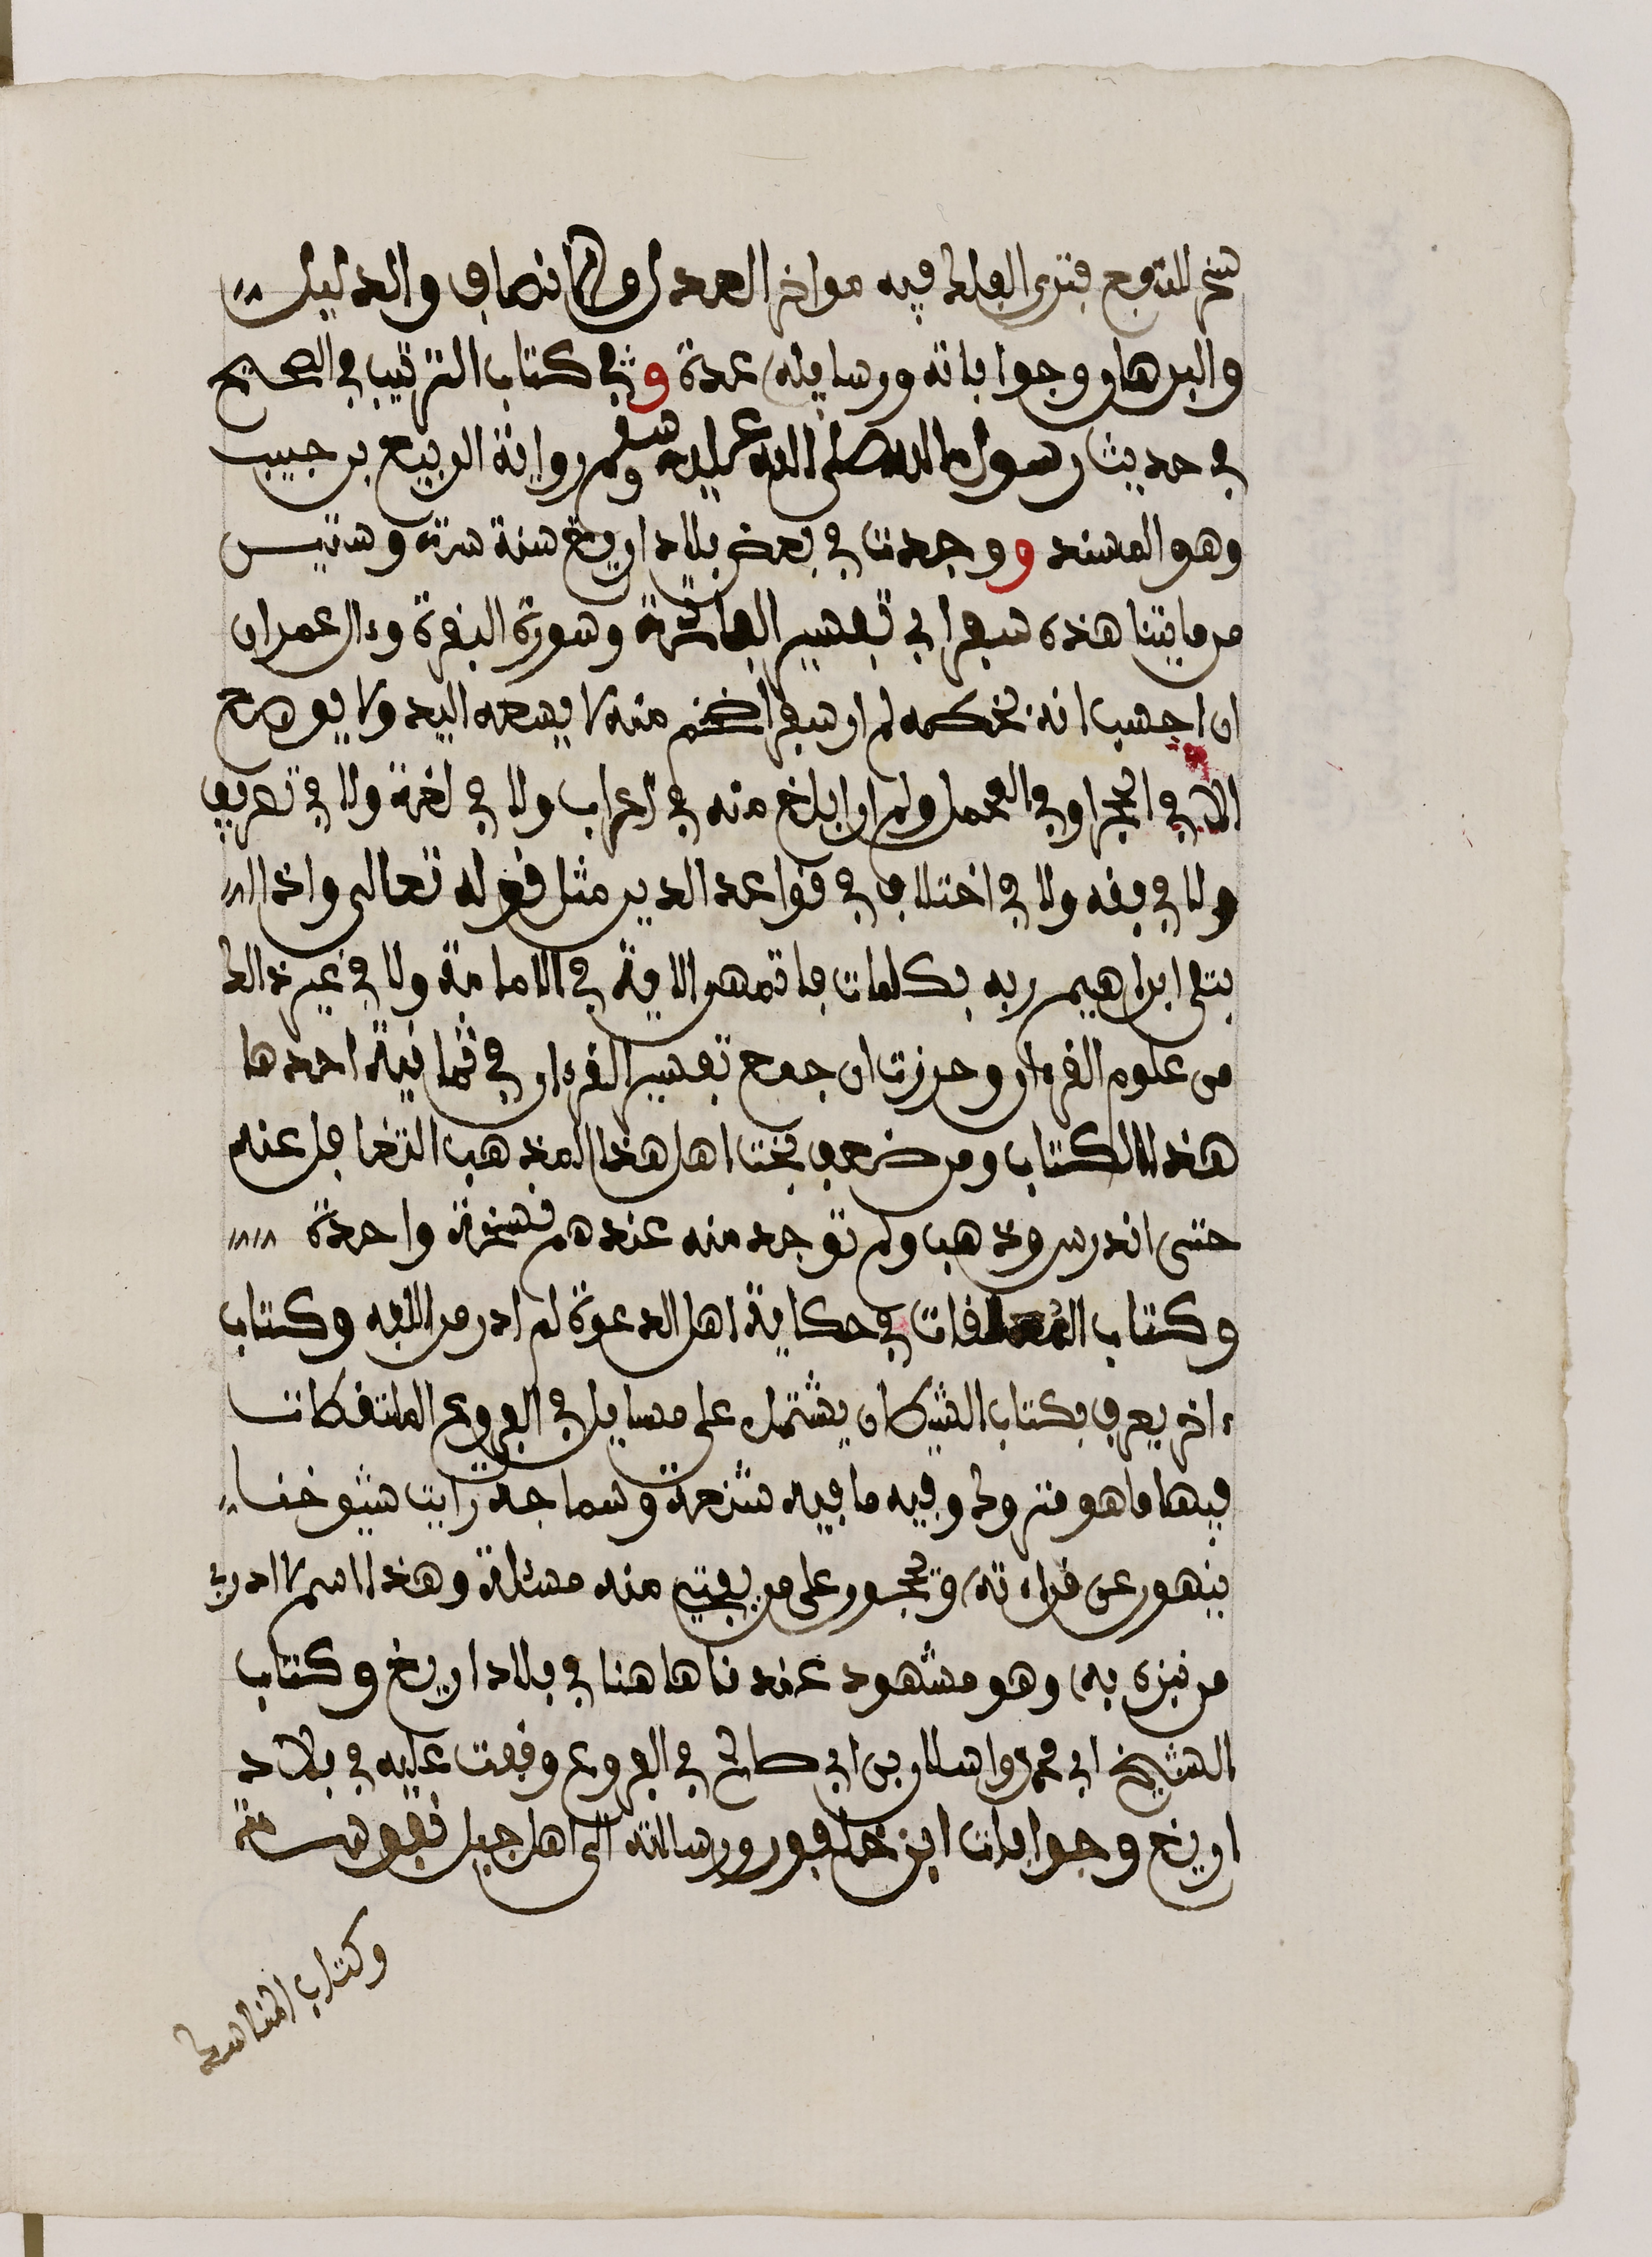 سخر للتوجع فترى الفلك فيه مواخر العدل والانصاف والدليل
والبرهان وجواباته ورسايله عدة وفي كتاب الترتيب في الصحيح
في حديث رسول الله صلى الله عليه وسلم رواية الربيع بن حبيب
وهو المسند ووجدت في بعض بلاد اريغ سنة ستة وستين
من مايتنا هذه سفرا في تفسير الفاتحة وسورة البقرة وءال عمران
ان احسب انه بخكمه لم ار سفرا ضخم منه لا يسعه اليد ولا يوضع
الا في الحجر او في المحمل ولم ار ابلغ منه في اعراب ولا في لغة ولا في تصريف
ولا في فقه ولا في اختلاف في قواعد الدين مثل قوله تعالى واذ ا
بتلى ابراهيم ربه بكلمات فاتمهن الاية في الامامة ولا في غير ذالك
من علوم القرءان وحرزت ان جمع تفسير القرءان في ثمانية احدها
هذا الكتاب ومن ضعف بخت اهل هذا المذهب التغافل عنه
حتى اندرس وذهب ولم توجد منه عندهم نسخة واحدة
وكتاب المعلقات في حكاية اهل الدعوة لم ادر من الفه وكتاب
ءاخر يعرف بكتاب الشيكان يشتمل على مسايل في الفروع الملتقطات
فيها ما هو متروك وفيه ما فيه شنعة وسماجة رايت شيوخنا
ينهون عن قراءته وتجسور على من يفتي منه مسئلة وهذا الاسم لا ادري
من نبزه به وهو مشهود عندنا هاهنا في بلاد اريغ وكتاب
الشيخ ابي محمد واسلان بن ابي صالح في الفروع وقفت عليه في بلاد
اريغ وجوابات ابن خلفون ورسالته الى اهل جبل نفوسة
وكتاب المناسك